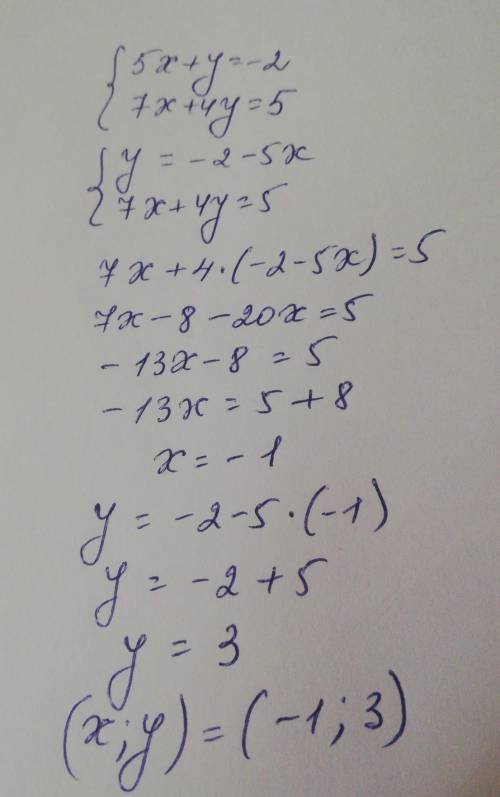 5x+y=-2
7x+4y=5
y=-2-5x
7x+4y=5
7x+4·(-2-5x)=5
7x-8-20x=5
-13x-8=5
-13x=5+8
x=-1
y=-2-5·(-1)
y=-2+5
y=3
(x;y)=(-1;3)